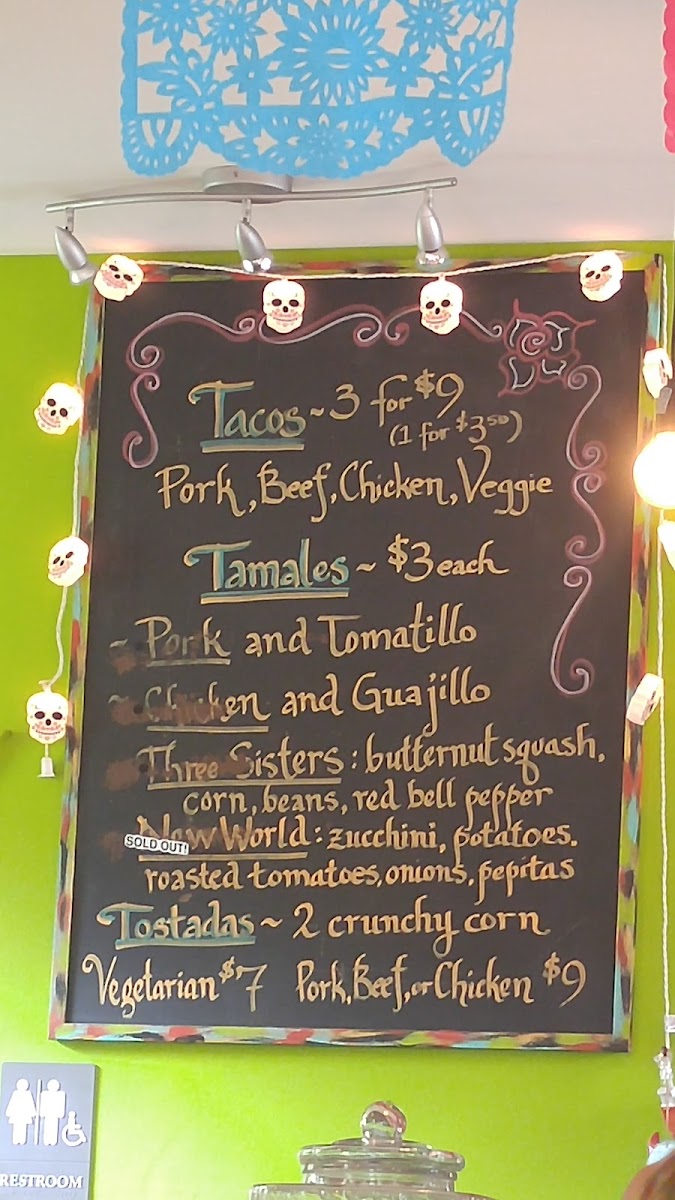 Tacos ~ 3 for $9
(1 for $3.50)
Pork, Beef, Chicken, Veggie
Tamales ~ $3 each
~ Pork and Tomatillo
~ Chicken and Guajillo
Three Sisters: butternut squash,
corn, beans, red bell pepper
New World: zucchini, potatoes.
SOLD OUT!
roasted tomatoes, onions, pepitas
Tostadas ~ 2 crunchy corn
Vegetarian $7 Pork, Beef, or Chicken $9
RESTROOM